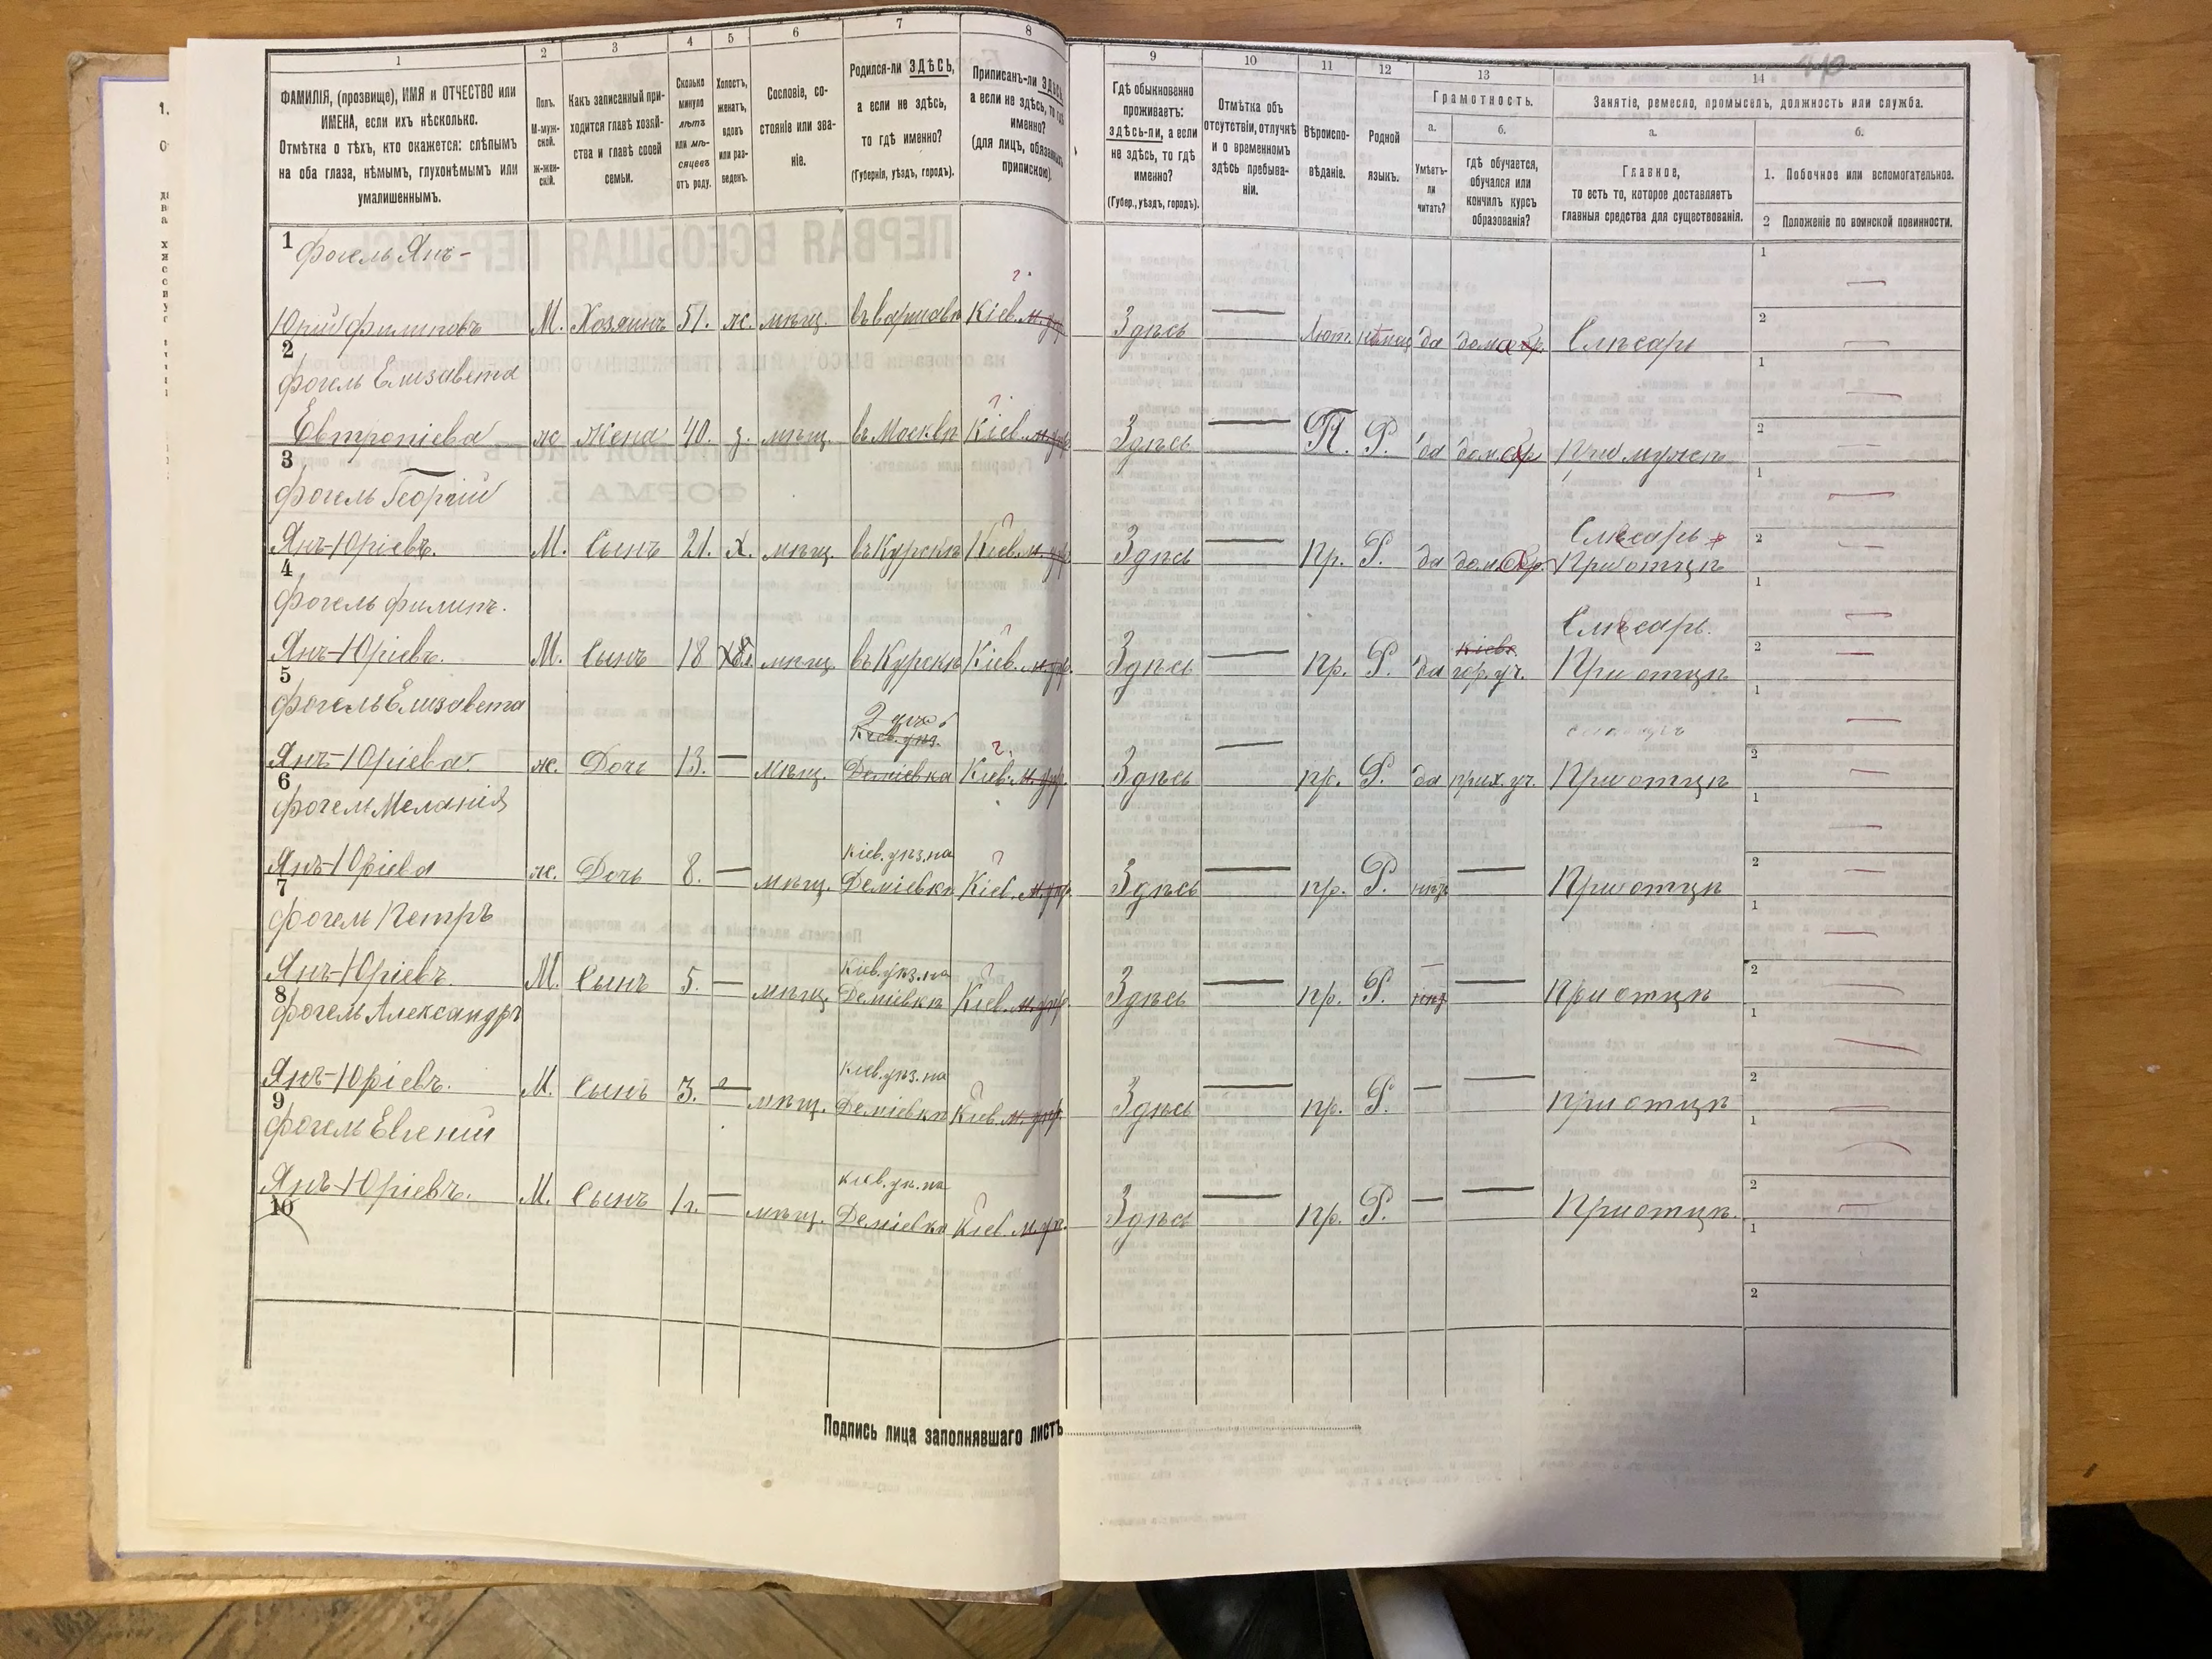 1 2 3 4 5 6 7 8 9 10 11 12 13 14
ФАМИЛІЯ, (прозвище), ИМЯ и ОТЧЕСТВО или
ИМЕНА, если ихъ нѣсколько.
Отмѣтка о тѣхъ, кто окажется: слѣпымъ
на оба глаза, нѣмымъ, глухонѣмымъ или
умалишеннымъ.
Полъ.
М-муж-
ской.
ж-жен-
скій.
Какъ записанный при-
ходится главѣ хозяй-
ства и главѣ своей
семьи.
Сколько
минуло
лѣтъ
или мѣ-
сяцевъ
отъ роду.
Холостъ,
женатъ,
вдовъ
или раз-
веденъ.
Сословіе, со-
стояніе или зва-
ніе.
Родился-ли ЗДѢСЬ,
а если не здѣсь,
то гдѣ именно?
(Губернія, уѣздъ, городъ).
Приписанъ-ли ЗДѢСЬ,
а если не здѣсь, то гдѣ
именно?
(для лицъ, обязанныхъ
припискою).
Гдѣ обыкновенно
проживаетъ:
здѣсь-ли, а если
не здѣсь, то гдѣ
именно?
(Губер., уѣздъ, городъ).
Отмѣтка объ
отсутствіи, отлучкѣ
и о временномъ
здѣсь пребыва-
ніи.
Вѣроиспо-
вѣданіе.
Родной
языкъ.
Грамотность.
а.
Умѣетъ-
ли
читать?
б.
гдѣ обучается,
обучался или
кончилъ курсъ
образованія?
Занятіе, ремесло, промыселъ, должность или служба.
а.
Главное,
то есть то, которое доставляетъ
главныя средства для существованія.
б.
1. Побочное или вспомогательное.
2 Положеніе по воинской повинности.
1 Фогель Янъ-
Юрій Филиповъ М. Хозяинъ 51. ж. мѣщ. въ Варшавѣ Кіев. г. Здѣсь — Лют. нѣмец да дома Слѣсарь
2 Фогель Елизавета
Евтропіева ж Жена 40. з. мѣщ. въ Москвѣ Кіев. г. Здѣсь — П. Р. да дом. При мужѣ
3 Фогель Георгій
Янъ-Юріевъ. М. Сынъ 21. х. мѣщ. въ Курскѣ Кіев. г. Здѣсь — пр. Р. да дом. Слѣсарь
При отцѣ
4 Фогель Филипъ.
Янъ-Юріевъ. М. Сынъ 18 мѣщ. въ Курскѣ Кіев. г. Здѣсь — пр. Р. да Кіевс. гор. уч. Слѣсарь.
При отцѣ
5 Фогель Елизавета
Янъ-Юріева ж. Дочь 13. — мѣщ. Кіев. уѣз. Деміевка Кіев. г. Здѣсь — пр. Р. да прих. уч. При отцѣ
6 Фогель Меланія
Янъ-Юріева ж. Дочь 8. — мѣщ. Кіев. уѣз. на Деміевкѣ Кіев. г. Здѣсь — пр. Р. нѣтъ — При отцѣ
7 Фогель Петръ
Янъ-Юріевъ. М. Сынъ 5. — мѣщ. Кіев. уѣз. на Деміевкѣ Кіев. г. Здѣсь — пр. Р. — При отцѣ
8 Фогель Александръ
Янъ-Юріевъ. М. Сынъ 3. — мѣщ. Кіев. уѣз. на Деміевкѣ Кіев. г. Здѣсь — пр. Р. — — При отцѣ
9 Фогель Евгеній
Янъ-Юріевъ. М. Сынъ 1 г. — мѣщ. Кіев. уѣ. на Деміевкѣ Кіев. г. Здѣсь — пр. Р. — — При отцѣ.
10
Подпись лица заполнявшаго листъ